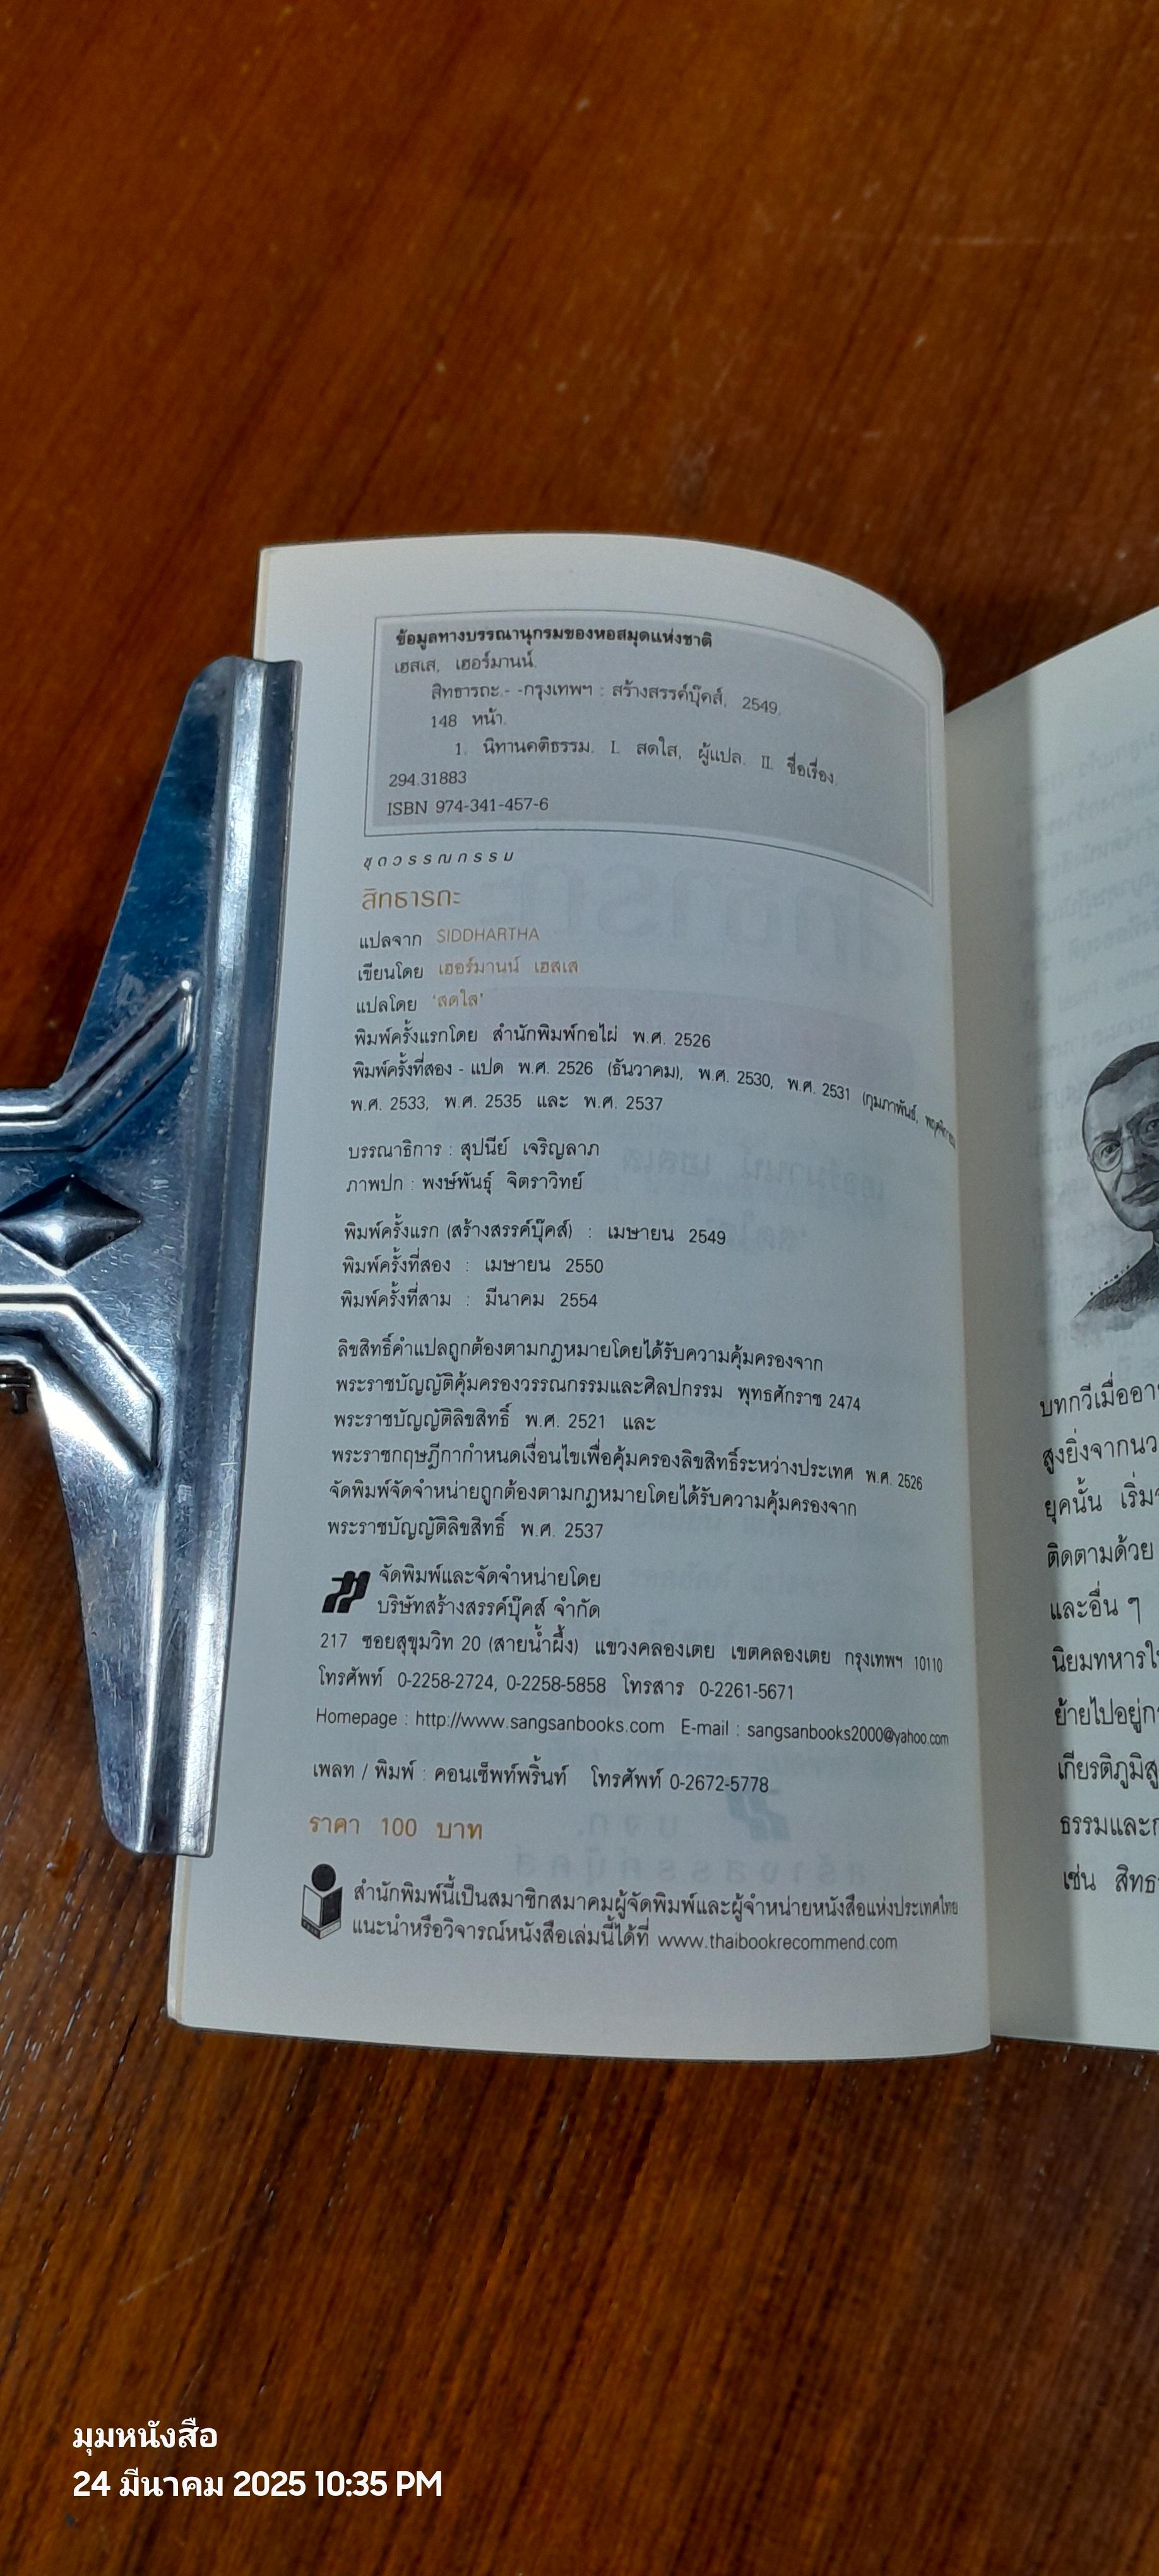 ข้อมูลทางบรรณานุกรมของหอสมุดแห่งชาติ
เฮสเส, เฮอร์มานน์.
สิทธารถะ.- -กรุงเทพฯ : สร้างสรรค์บุ๊คส์, 2549.
148 หน้า.
1. นิทานคติธรรม. I. สดใส, ผู้แปล. II. ชื่อเรื่อง.
294.31883
ISBN 974-341-457-6
ชุดวรรณกรรม
สิทธารถะ
แปลจาก SIDDHARTHA
เขียนโดย เฮอร์มานน์ เฮสเส
แปลโดย 'สดใส'
พิมพ์ครั้งแรกโดย สำนักพิมพ์กอไผ่ พ.ศ. 2526
พิมพ์ครั้งที่สอง - แปด พ.ศ. 2526 (ธันวาคม), พ.ศ. 2530, พ.ศ. 2531 (กุมภาพันธ์,
พ.ศ. 2533, พ.ศ. 2535 และ พ.ศ. 2537
บรรณาธิการ : สุปนีย์ เจริญลาภ
ภาพปก : พงษ์พันธุ์ จิตราวิทย์
พิมพ์ครั้งแรก (สร้างสรรค์บุ๊คส์) : เมษายน 2549
พิมพ์ครั้งที่สอง : เมษายน 2550
พิมพ์ครั้งที่สาม : มีนาคม 2554
ลิขสิทธิ์คำแปลถูกต้องตามกฎหมายโดยได้รับความคุ้มครองจาก
พระราชบัญญัติคุ้มครองวรรณกรรมและศิลปกรรม พุทธศักราช 2474
พระราชบัญญัติลิขสิทธิ์ พ.ศ. 2521 และ
พระราชกฤษฎีกากำหนดเงื่อนไขเพื่อคุ้มครองลิขสิทธิ์ระหว่างประเทศ พ.ศ. 2526
จัดพิมพ์จัดจำหน่ายถูกต้องตามกฎหมายโดยได้รับความคุ้มครองจาก
พระราชบัญญัติลิขสิทธิ์ พ.ศ. 2537
จัดพิมพ์และจัดจำหน่ายโดย
บริษัทสร้างสรรค์บุ๊คส์ จำกัด
217 ซอยสุขุมวิท 20 (สายน้ำผึ้ง) แขวงคลองเตย เขตคลองเตย กรุงเทพฯ 10110
โทรศัพท์ 0-2258-2724, 0-2258-5858 โทรสาร 0-2261-5671
Homepage : http://www.sangsanbooks.com E-mail : sangsanbooks2000@yahoo.com
เพลท / พิมพ์ : คอนเซ็พท์พริ้นท์ โทรศัพท์ 0-2672-5778
ราคา 100 บาท
สำนักพิมพ์นี้เป็นสมาชิกสมาคมผู้จัดพิมพ์และผู้จำหน่ายหนังสือแห่งประเทศไทย
แนะนำหรือวิจารณ์หนังสือเล่มนี้ได้ที่ www.thaibookrecommend.com
บทกวีเมื่ออา
สูงยิ่งจากนว
ยุคนั้น เริ่ม
ติดตามด้วย
และอื่น ๆ
นิยมทหารใ
ย้ายไปอยู่ก
เกียรติภูมิสู
ธรรมและก
เช่น สิทธ
มุมหนังสือ
24 มีนาคม 2025 10:35 PM